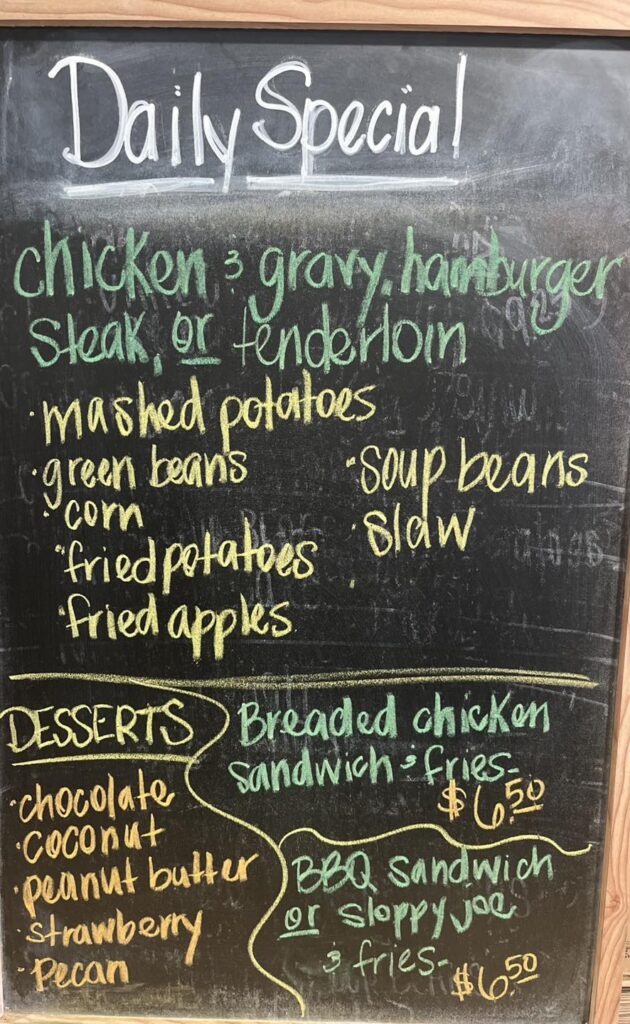 Daily Special
chicken & gravy, hamburger
steak, or tenderloin
• mashed potatoes
• green beans
• corn
• fried potatoes
• fried apples
• soup beans
• slaw
DESSERTS
• chocolate
• coconut
• peanut butter
• strawberry
• Pecan
Breaded chicken
sandwich & fries-
$6.50
BBQ sandwich
or sloppy joe
& fries-
$6.50